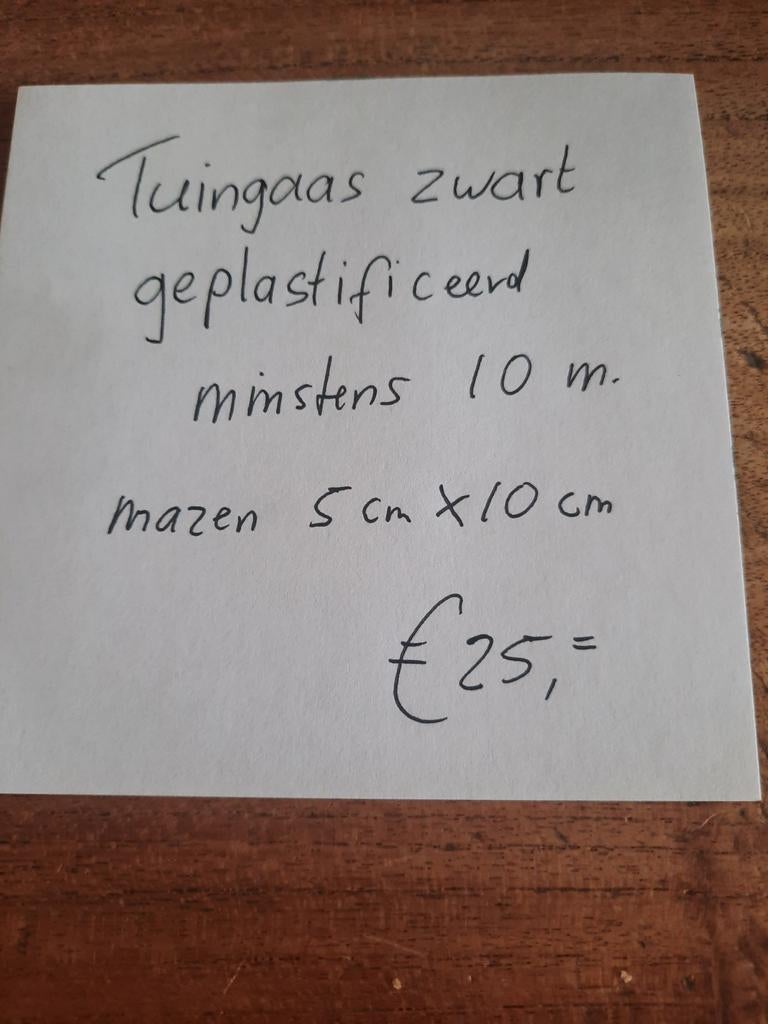 Tuingaas zwart
geplastificeerd
minstens 10 m.
mazen 5 cm x 10 cm
€ 25,=